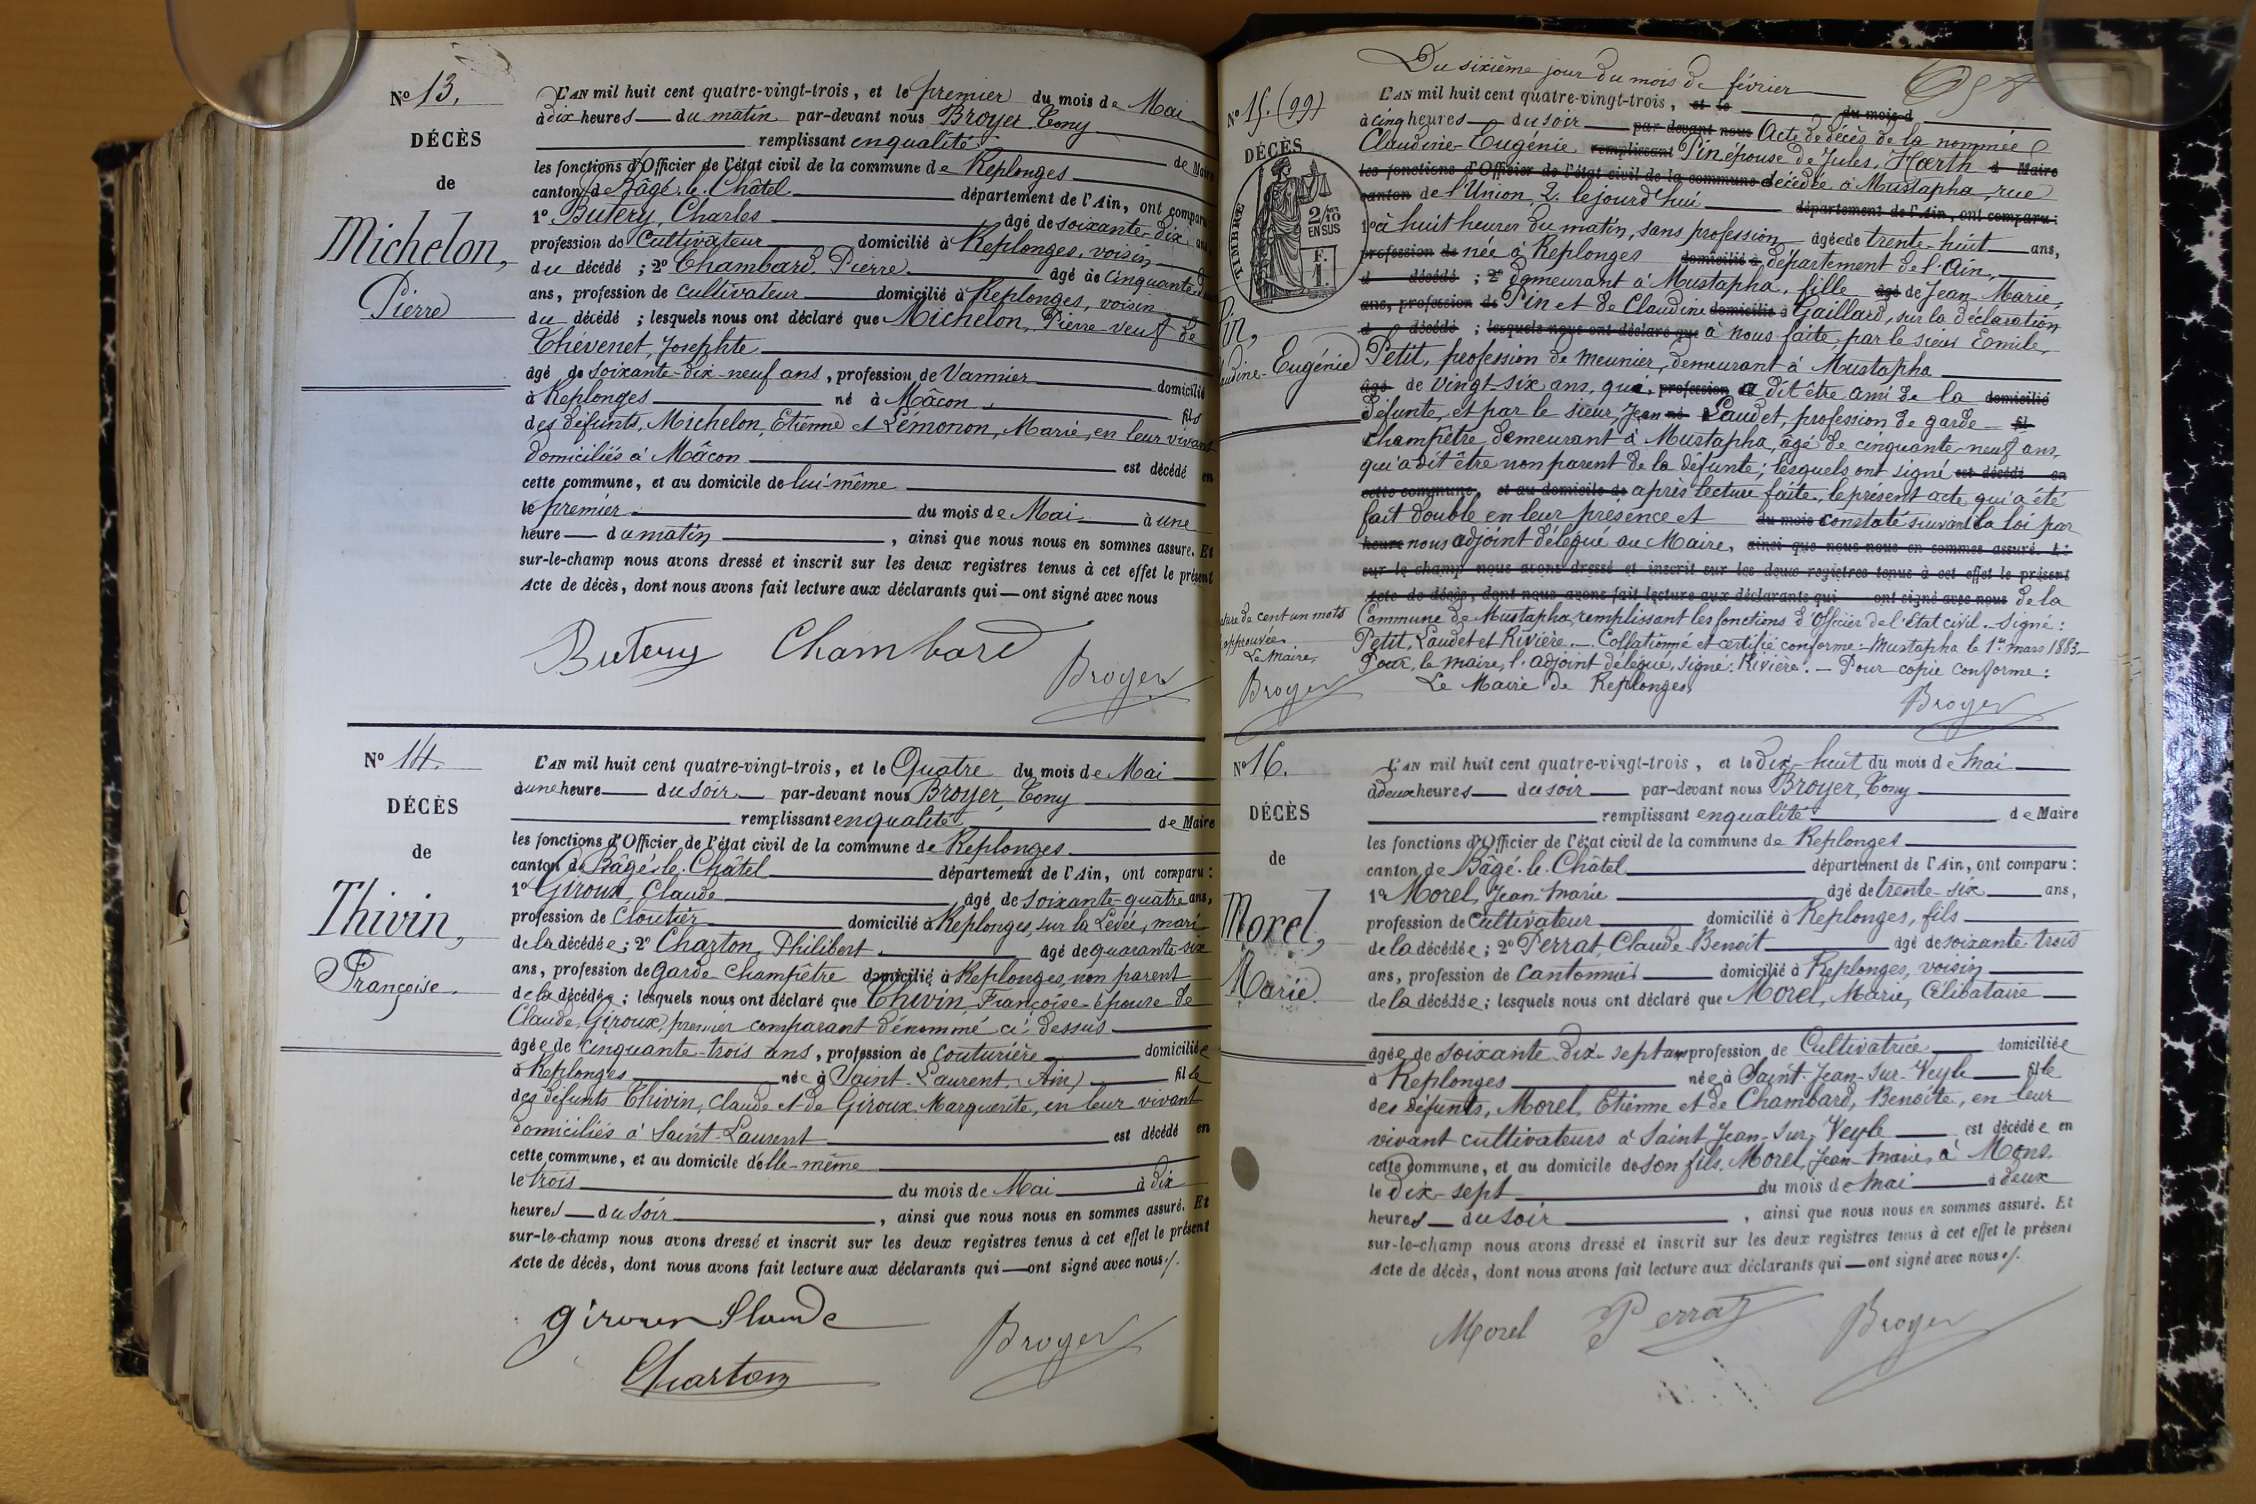 No 13.
DÉCÈS
de
Michelon,
Pierre
L'AN mil huit cent quatre-vingt-trois, et le premier du mois de Mai
à dix heures du matin par-devant nous Broyer Tony
remplissant en qualité de Maire
les fonctions d'Officier de l'état civil de la commune de Replonges
canton de Bâgé-le-Châtel département de l'Ain, ont comparu
1o Butery, Charles âgé de soixante-dix ans
profession de Cultivateur domicilié à Replonges, voisin
du décédé ; 2o Chambard, Pierre âgé de Cinquante
ans, profession de cultivateur domicilié à Replonges, voisin
du décédé ; lesquels nous ont déclaré que Michelon, Pierre veuf de
Thevenet, Josephte
âgé de soixante-dix-neuf ans, profession de Vannier domicilié
à Replonges né à Mâcon fils
des défunts, Michelon, Etienne et Lémonon, Marie, en leur vivant
domiciliés à Mâcon est décédé en
cette commune, et au domicile de lui-même
le premier du mois de Mai à une
heure du matin, ainsi que nous nous en sommes assuré. Et
sur-le-champ nous avons dressé et inscrit sur les deux registres tenus à cet effet le présent
Acte de décès, dont nous avons fait lecture aux déclarants qui ont signé avec nous
Butery Chambard Broyer
No 14.
DÉCÈS
de
Thivin,
Françoise.
L'AN mil huit cent quatre-vingt-trois, et le Quatre du mois de Mai
à une heure du soir par-devant nous Broyer, Tony
remplissant en qualité de Maire
les fonctions d'Officier de l'état civil de la commune de Replonges
canton de Bâgé-le-Châtel département de l'Ain, ont comparu :
1o Giroux, Claude âgé de soixante-quatre ans,
profession de Cloutier domicilié à Replonges, sur la Levée, mari
de la décédée ; 2o Charton, Philibert âgé de quarante-six
ans, profession de Garde Champêtre domicilié à Replonges, non parent
de la décédée ; lesquels nous ont déclaré que Thivin, Françoise épouse de
Claude Giroux, premier comparant dénommé ci-dessus
âgée de cinquante-trois ans, profession de couturière domiciliée
à Replonges née à Saint-Laurent, (Ain) fille
des défunts Thivin, Claude et de Giroux Marguerite, en leur vivant
domiciliés à Saint-Laurent est décédé en
cette commune, et au domicile d'elle-même
le trois du mois de Mai à dix
heures du soir, ainsi que nous nous en sommes assuré. Et
sur-le-champ nous avons dressé et inscrit sur les deux registres tenus à cet effet le présent
Acte de décès, dont nous avons fait lecture aux déclarants qui ont signé avec nous ./.
giroux Claude
Charton Broyer
Du sixième jour du mois de février
No 15. (99)
DÉCÈS
TIMBRE
2/10
EN SUS
F.
1.
in,
Eugénie
L'AN mil huit cent quatre-vingt-trois, et le du mois d
à cinq heures du soir par devant nous Acte de décès de la nommée
Claudine-Eugénie remplissant Pin épouse de Jules Hœrth d Maire
les fonctions d'Officier de l'état civil de la commune décédée à Mustapha, rue
canton de l'Union, 2. lejourd'hui département de l'Ain, ont comparu :
1o à huit heures du matin, sans profession âgée de trente-huit ans,
profession de née à Replonges domicilié à département de l'Ain,
d décédé ; 2o demeurant à Mustapha, fille âgé de Jean-Marie,
ans, profession de Pin et de Claudine domicilié à Gaillard, sur la déclaration
d décédé ; lesquels nous ont déclaré que à nous faite, par le sieur Emile
Petit, profession de meunier, demeurant à Mustapha
âgé de vingt-six ans, qui profession a dit être ami de la domicilié
défunte, et par le sieur Jean né à Laudet, profession de garde fil
champêtre, demeurant à Mustapha, âgé de cinquante-neuf ans,
qui a dit être non parent de la défunte ; lesquels ont signé est décédé en
cette commune, et au domicile de après lecture faite, le présent acte qui a été
fait double en leur présence et du mois constaté suivant la loi par
heure nous adjoint délégué au Maire, ainsi que nous nous en sommes assuré. Et
sur-le-champ nous avons dressé et inscrit sur les deux registres tenus à cet effet le présent
Acte de décès, dont nous avons fait lecture aux déclarants qui ont signé avec nous de la
Commune de Mustapha, remplissant les fonctions d'Officier de l'État civil. Signé :
Petit, Laudet et Rivière. Collationné et certifié conforme : Mustapha le 1er mars 1883
Pour le maire, l'adjoint délégué, signé : Rivière. Pour copie conforme :
Le Maire de Replonges
Broyer
de cent un mots
approuvée
Le Maire,
Broyer
No 16.
DÉCÈS
de
Morel,
Marie
L'AN mil huit cent quatre-vingt-trois, et le dix-huit du mois de Mai
à deux heures du soir par-devant nous Broyer, Tony
remplissant en qualité de Maire
les fonctions d'Officier de l'état civil de la commune de Replonges
canton de Bâgé-le-Châtel département de l'Ain, ont comparu :
1o Morel, Jean-Marie âgé de trente-six ans,
profession de Cultivateur domicilié à Replonges, fils
de la décédée ; 2o Perrat, Claude Benoît âgé de soixante-trois
ans, profession de cantonnier domicilié à Replonges, voisin
de la décédée ; lesquels nous ont déclaré que Morel, Marie, Célibataire
âgée de soixante-dix-sept ans profession de Cultivatrice domiciliée
à Replonges née à Saint-Jean-sur-Veyle fille
des défunts, Morel, Etienne et de Chambard, Benoîte, en leur
vivant cultivateurs à Saint-Jean-sur-Veyle est décédée en
cette commune, et au domicile de son fils Morel, Jean-Marie, à Mons
le dix-sept du mois de Mai à deux
heures du soir, ainsi que nous nous en sommes assuré. Et
sur-le-champ nous avons dressé et inscrit sur les deux registres tenus à cet effet le présent
Acte de décès, dont nous avons fait lecture aux déclarants qui ont signé avec nous ./.
Morel Perrat Broyer